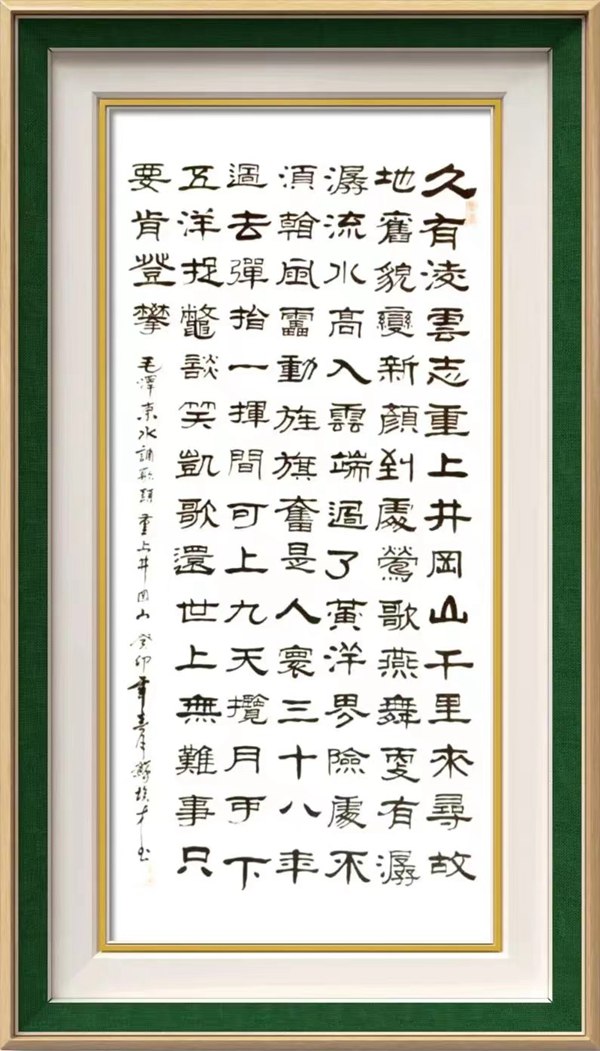 久有凌雲志重上井岡山千里來尋故
地舊貌變新顏到處鶯歌燕舞更有潺
潺流水高入雲端過了黃洋界險處不
須看風靁動旌旗奮是人寰三十八年
過去彈指一揮間可上九天攬月可下
五洋捉鱉談笑凱歌還世上無難事只
要肯登攀
毛澤東水調歌頭重上井岡山癸卯年春月